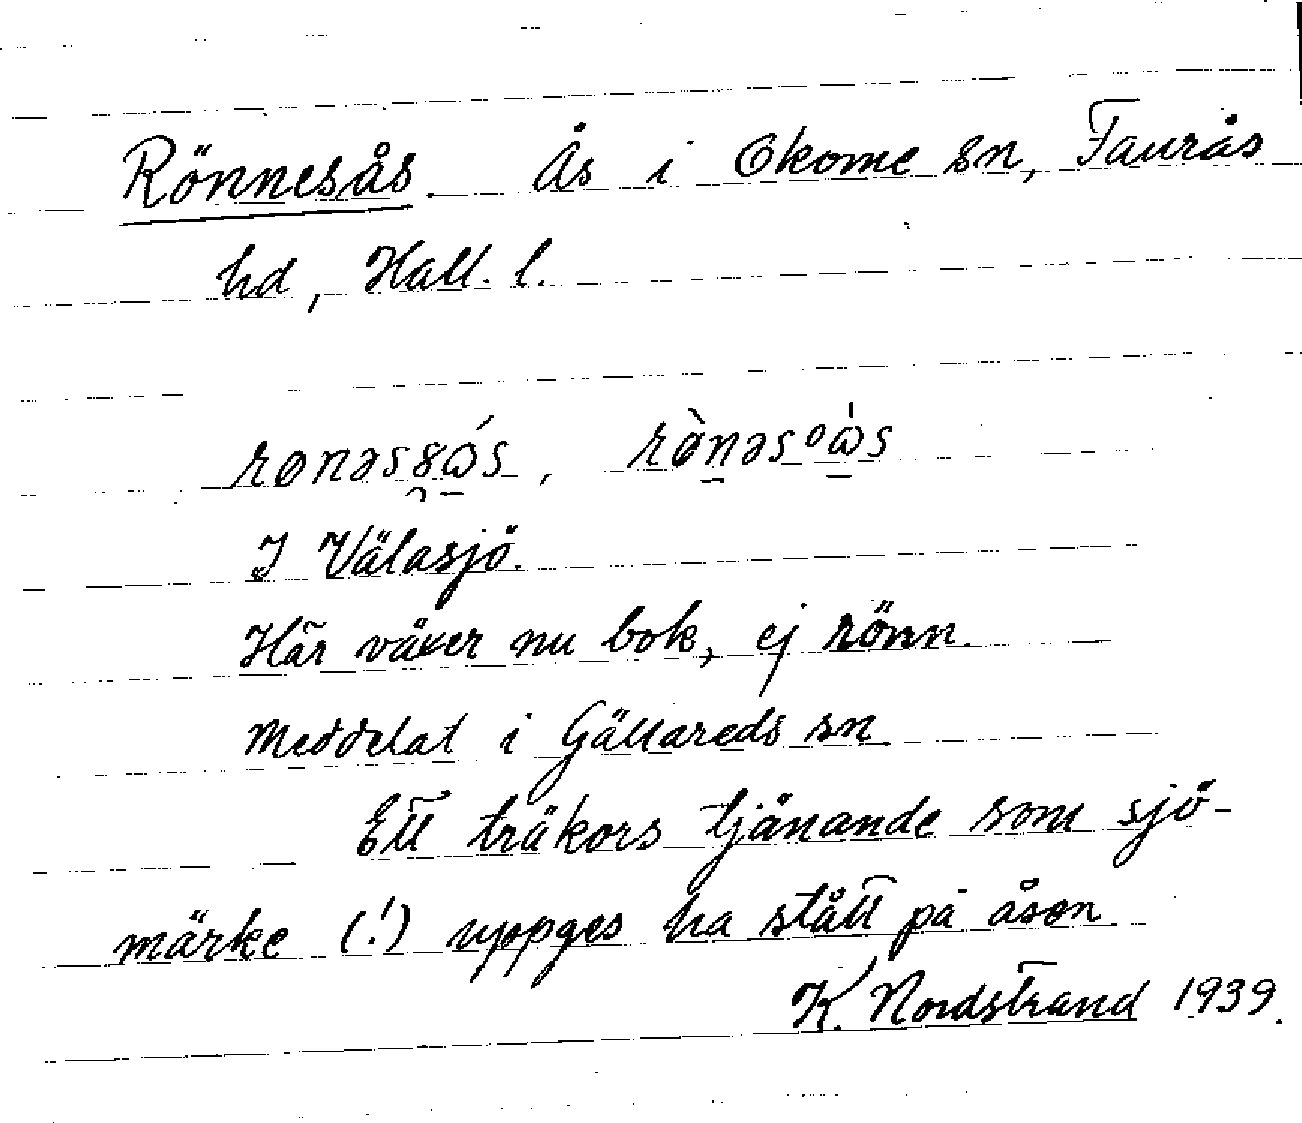 Rönnesås. Ås i Okome sn, Faurås
hd, Hall. l.
I Välasjö.
Här växer nu bok, ej rönn.
Meddelat i Gällareds sn
Ett träkors tjänande som sjö-
märke (!) uppges ha stått på åsen
K. Nordstrand 1939.